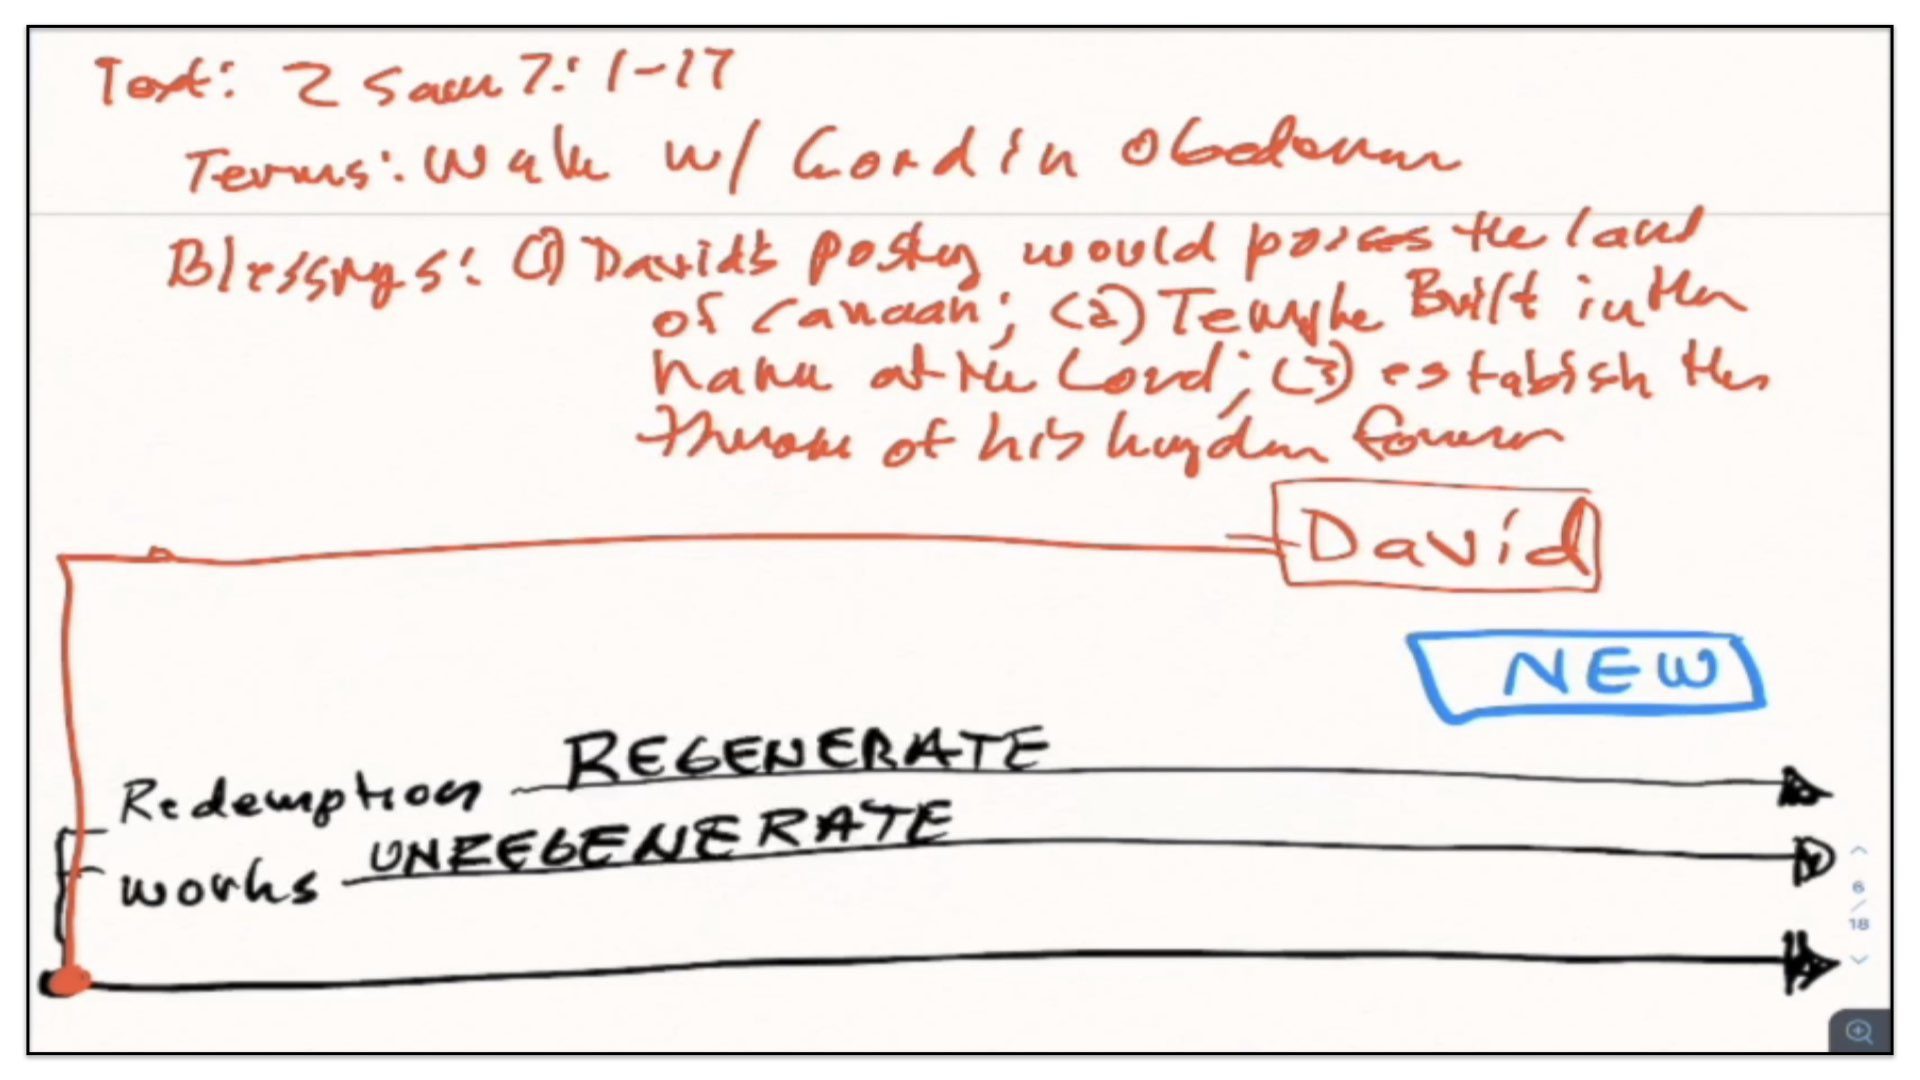 Text: 2 Sam 7: 1-17
Terms: Walk w/ Lord in Obedence
Blessings: (1) David's posterity would posses the land
of Canaan; (2) Temple Built in the
name of the Lord; (3) establish the
throne of his kingdom forever
David
NEW
Redemption REGENERATE
works UNREGENERATE
6
/
18